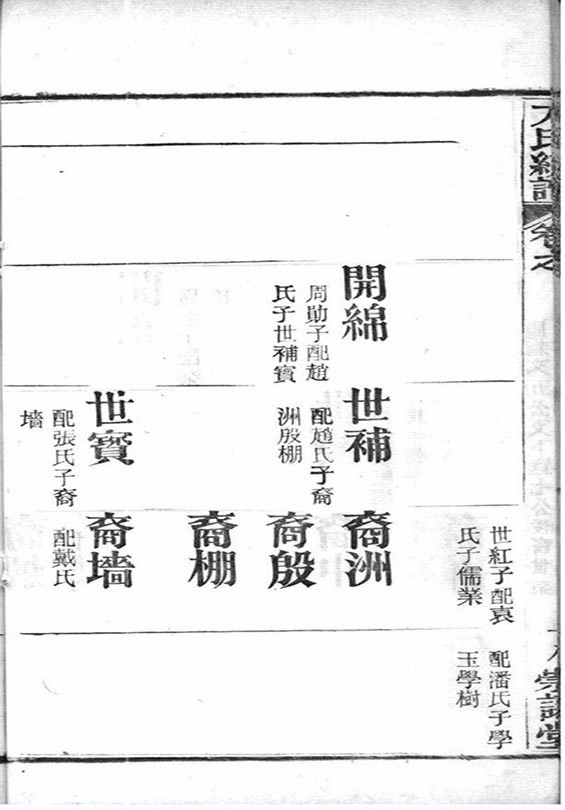 卷之
世紅子配袁
氏子儒業
配潘氏子學
玉學樹
開綿
周勛子配趙
氏子世補賓
世補
配趙氏子裔
洲殷棚
裔洲
裔殷
裔棚
世賓
配張氏子裔
墙
裔墙
配戴氏